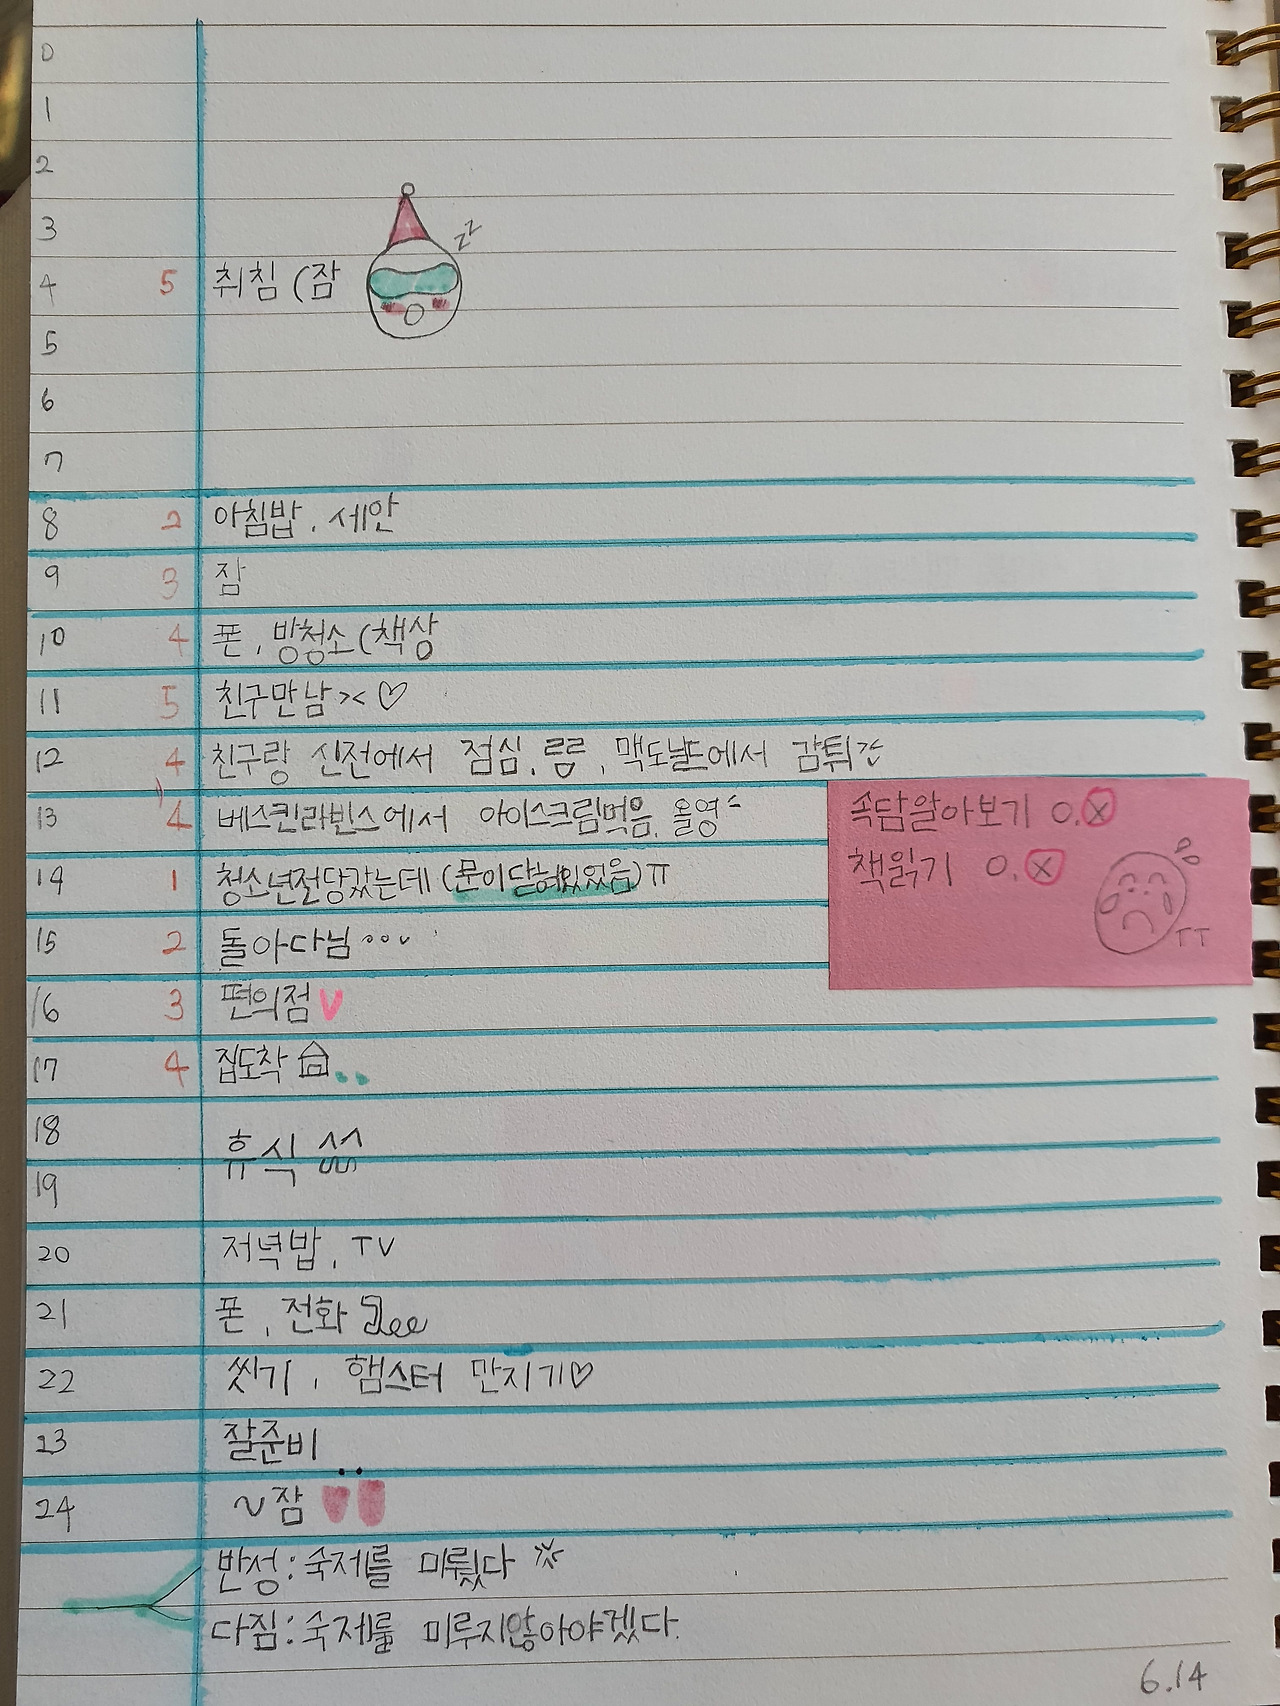 0
1
2
3
4 5 취침 (잠 zz
5
6
7
8 2 아침밥, 세안
9 3 잠
10 4 폰, 방청소 (책상
11 5 친구만남 >< ♡
12 4 친구랑 신전에서 점심, 룸, 맥도날드에서 감튀
13 4 베스킨라빈스에서 아이스크림먹음, 올영
속담알아보기 O.ⓧ
책읽기 O.ⓧ
TT
14 1 청소년전당갔는데 (문이닫혀있었음)ㅠ
15 2 돌아다님...
16 3 편의점
17 4 집도착
18
휴식
19
20 저녁밥, TV
21 폰, 전화
22 씻기, 햄스터 만지기♡
23 잘준비
24 ~잠
반성: 숙제를 미뤘다
다짐: 숙제를 미루지않아야겠다.
6.14